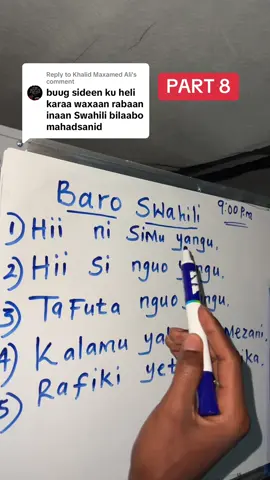 Reply to Khalid Maxamed Ali's
comment
buug sideen ku heli
karaa waxaan rabaan
inaan Swahili bilaabo
mahadsanid
PART 8
Baro Swahili
9:00 P.m
1) Hii ni Simu yangu.
2) Hii Si nguo
3) TaFuta nguo
4) Kalamu Mezani.
5) Rafiki